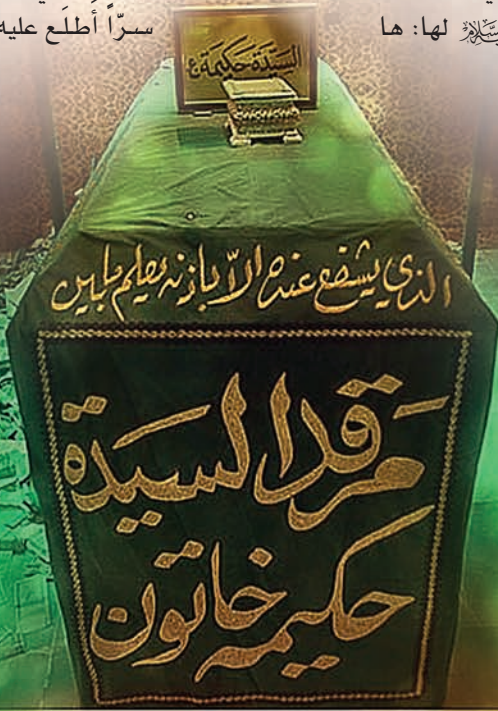 لها: ها سرّاً أطلَع عليه
السيدة حكيمة ع
الذي يشفع عنده الاّ باذنه يعلم مابين
مرقد السيدة
حكيمه خاتون